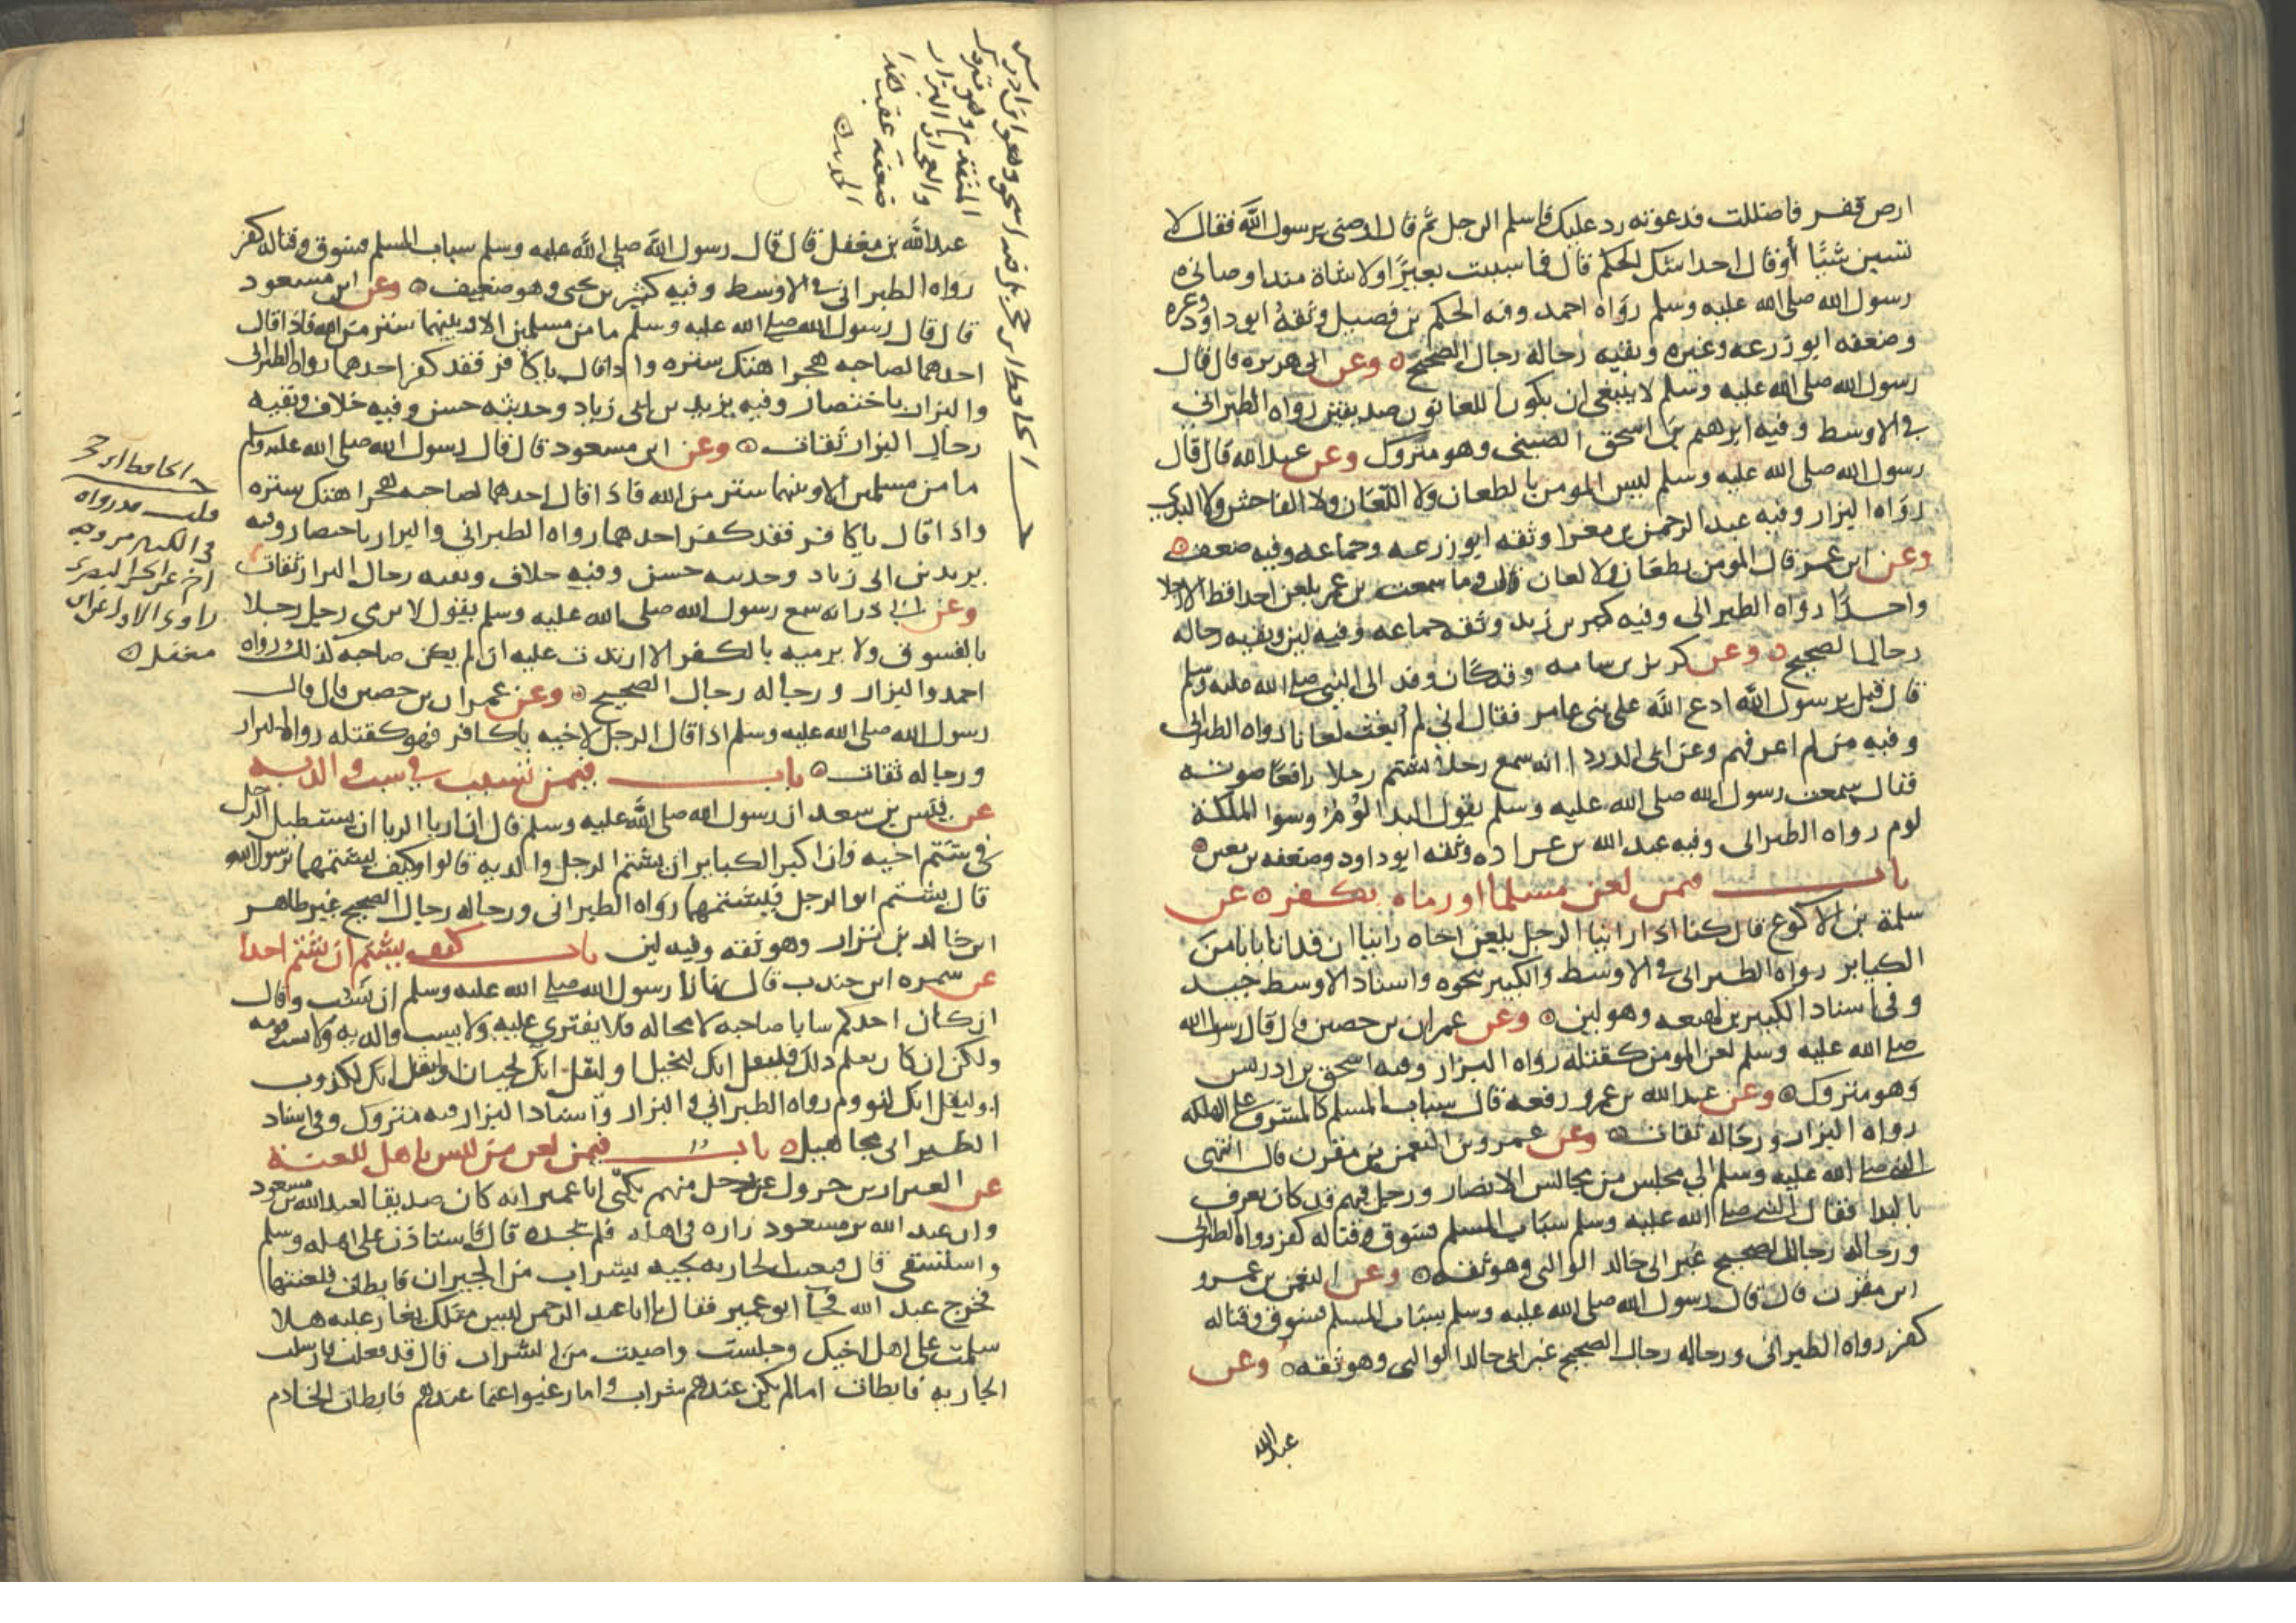 ارض قفر فاضللت فدعوته رد عليك فاسلم الرجل ثم قال اوصنى يرسول الله فقال لا
تسبن شيئا أو قال احدا شك الحكم قال فما سببت بعيرا ولا شاة منذ اوصانى
رسول الله صلى الله عليه وسلم رواه احمد وفيه الحكم بن فضيل وثقه ابو داود وغيره
وضعفه ابو زرعه وغيره وبقيه رجاله رجال الصحيح ه وعن ابى هريره قال قال
رسول الله صلى الله عليه وسلم لا ينبغى ان يكون اللعانون صديقين رواه الطبرانى
فى الاوسط وفيه ابرهيم بن اسحق الضبى وهو متروك وعن عبد الله قال قال
رسول الله صلى الله عليه وسلم ليس المومن بالطعان ولا اللعان ولا الفاحش ولا البذى
رواه البزار وفيه عبد الرحمن بن مغرا وثقه ابو زرعه وجماعه وفيه ضعف ه
وعن ابن عمر قال المومن بطعان ولا لعان وما سمعت بن عمر يلعن احدا قط الا رجلا
واحدا رواه الطبرانى وفيه كثير بن زيد وثقه جماعه وفيه لين وبقيه رجاله
رجال الصحيح ه وعن كريز بن سامه وقد كان وفد الى النبى صلى الله عليه وسلم
قال قيل يرسول الله ادع الله على بنى عامر فقال انى لم ابعث لعانا رواه الطبرانى
وفيه من لم اعرفهم وعن ابى الدرداء انه سمع رجلا يشتم رجلا رافعا صوته
فقال سمعت رسول الله صلى الله عليه وسلم يقول البذا لؤم وسوا الملكة
لوم رواه الطبرانى وفيه عبد الله بن عراده وثقه ابو داود وضعفه بن معين ه
باب فيمن لعن مسلما او رماه بكفر ه عن
سلمة بن الاكوع قال كنا اذا راينا الرجل يلعن اخاه راينا ان قد اتا بابا من
الكبائر رواه الطبرانى فى الاوسط والكبير بنحوه واسناد الاوسط جيد
وفى اسناد الكبير بن لهيعه وهو لين ه وعن عمران بن حصين قال قال رسول الله
صلى الله عليه وسلم لعن المومن كقتله رواه البزار وفيه اسحق بن ادريس
وهو متروك ه وعن عبد الله بن عمرو رفعه قال سباب المسلم كالمشرف على الهلكه
رواه البزار ورجاله ثقات ه وعن عمرو بن النعمن بن مقرن قال انتهى
النبى صلى الله عليه وسلم الى مجلس من مجالس الانصار ورجل فيهم قد كان يعرف
بالبذا فقال النبى صلى الله عليه وسلم سباب المسلم فسوق وقتاله كفر رواه الطبرانى
ورجاله رجال الصحيح غير ابى خالد الوالبى وهو ثقه ه وعن النعمن بن عمرو
ابن مقرن قال قال رسول الله صلى الله عليه وسلم سباب المسلم فسوق وقتاله
كفر رواه الطبرانى ورجاله رجال الصحيح غير ابى خالد الوالبى وهو ثقه ه وعن
عبد الله
عبد الله بن مغفل قال قال رسول الله صلى الله عليه وسلم سباب المسلم فسوق وقتاله كفر
رواه الطبرانى فى الاوسط وفيه كثير بن يحيى وهو ضعيف ه وعن ابن مسعود
قال قال رسول الله صلى الله عليه وسلم ما من مسلمين الا وبينهما ستر من الله فاذا قال
احدهما لصاحبه هجرا هتك ستره واذا قال ياكافر فقد كفر احدهما رواه الطبرانى
والبزار باختصار وفيه يزيد بن ابى زياد وحديثه حسن وفيه خلاف وبقيه
رجال البزار ثقات ه وعن ابن مسعود قال قال رسول الله صلى الله عليه وسلم
ما من مسلمين الا وبينهما ستر من الله فاذا قال احدهما لصاحبه هجرا هتك ستره
واذا قال ياكافر فقد كفر احدهما رواه الطبرانى والبزار باختصار وفيه
يزيد بن ابى زياد وحديثه حسن وفيه خلاف وبقيه رجال البزار ثقات
وعن ابى ذر انه سمع رسول الله صلى الله عليه وسلم يقول لا يرمى رجل رجلا
بالفسوق ولا يرميه بالكفر الا ارتدت عليه ان لم يكن صاحبه كذلك رواه
احمد والبزار ورجاله رجال الصحيح ه وعن عمران بن حصين قال قال
رسول الله صلى الله عليه وسلم اذا قال الرجل لاخيه ياكافر فهو كقتله رواه البزار
ورجاله ثقات ه باب فيمن تسبب فى سب والديه
عن قيس بن سعد ان رسول الله صلى الله عليه وسلم قال ان اربا الربا ان يستطيل الرجل
فى شتم اخيه وان اكبر الكبائر ان يشتم الرجل والديه قالوا وكيف يشتمهما يرسول الله
قال يشتم ابو الرجل فيشتمهما رواه الطبرانى ورجاله رجال الصحيح غير طاهر
ابن خالد بن نزار وهو ثقه وفيه لين باب كيف يشتم ان شتم احدا
عن سمره ابن جندب قال نهانا رسول الله صلى الله عليه وسلم ان نسب وقال
ان كان احدكم سابا صاحبه لا محاله فلا يفترى عليه ولا يسب والديه ولا يسب قومه
ولكن ان كان يعلم ذلك فليقل انك لبخيل او ليقل انك لجبان او ليقل انك لكذوب
او ليقل انك لنووم رواه الطبرانى والبزار واسناد البزار فيه متروك وفى اسناد
الطبرانى مجاهيل ه باب فيمن لعن من ليس باهل للعنة
عن العيزار بن جرول عن رجل منهم يكنى ابا عمير انه كان صديقا لعبد الله بن مسعود
وان عبد الله بن مسعود زاره فى اهله فلم يجده قال فاستاذن على اهله وسلم
واستسقى قال فبعثت الجاريه تجيه بشراب من الجيران فابطات فلعنتها
فخرج عبد الله فجا ابو عمير فقال يا ابا عبد الرحمن ليس مثلك يغار عليه هلا
سلمت على اهل اخيك وجلست واصبت من الشراب قال قد فعلت فارسلت
الجاريه فابطات اما لم يكن عندهم شراب واما رغبوا عما عندهم فابطات الخادم
المتقدم
الحديث ه
قلت قد رواه
فى الكبير من وجه
اخر عن الحسن البصرى
راوى الاول عن ابن
مغفل ه